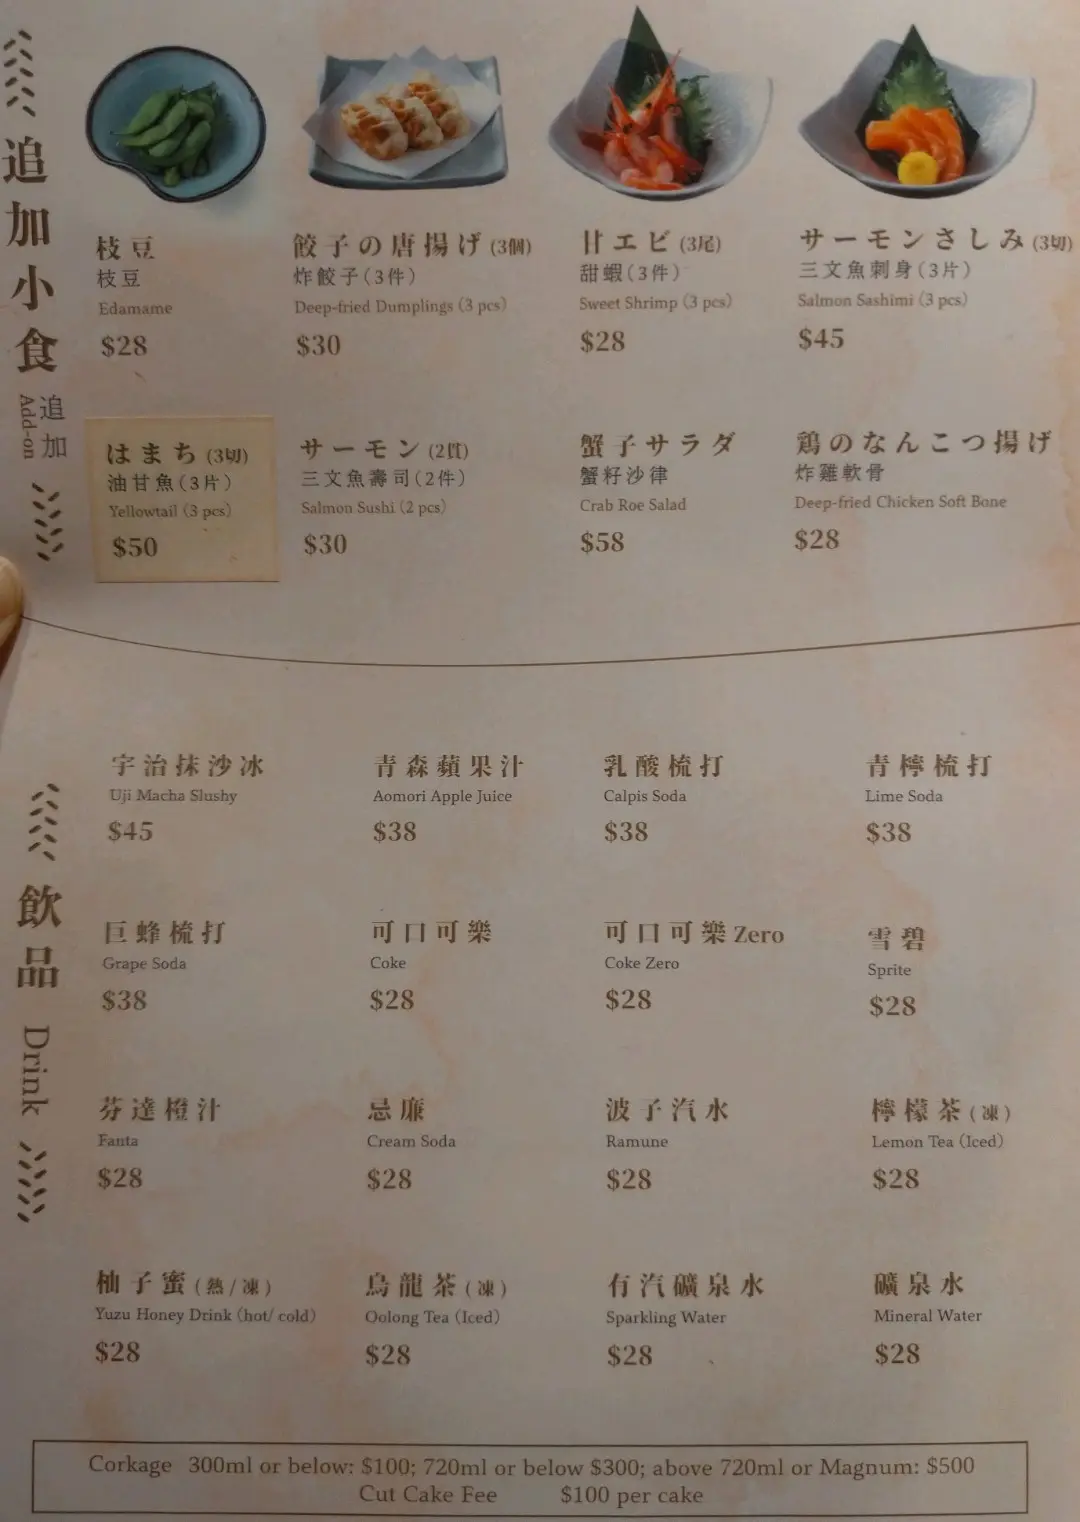 追加小食
追加
Add-on
枝豆
枝豆
Edamame
$28
餃子の唐揚げ (3個)
炸餃子(3件)
Deep-fried Dumplings (3 pcs)
$30
甘エビ (3尾)
甜蝦(3件)
Sweet Shrimp (3 pcs)
$28
サーモンさしみ (3切)
三文魚刺身(3片)
Salmon Sashimi (3 pcs)
$45
はまち (3切)
油甘魚(3片)
Yellowtail (3 pcs)
$50
サーモン (2貫)
三文魚壽司(2件)
Salmon Sushi (2 pcs)
$30
蟹子サラダ
蟹籽沙律
Crab Roe Salad
$58
鶏のなんこつ揚げ
炸雞軟骨
Deep-fried Chicken Soft Bone
$28
飲品
Drink
宇治抹沙冰
Uji Macha Slushy
$45
青森蘋果汁
Aomori Apple Juice
$38
乳酸梳打
Calpis Soda
$38
青檸梳打
Lime Soda
$38
巨蜂梳打
Grape Soda
$38
可口可樂
Coke
$28
可口可樂 Zero
Coke Zero
$28
雪碧
Sprite
$28
芬達橙汁
Fanta
$28
忌廉
Cream Soda
$28
波子汽水
Ramune
$28
檸檬茶(凍)
Lemon Tea (Iced)
$28
柚子蜜(熱/凍)
Yuzu Honey Drink (hot/ cold)
$28
烏龍茶(凍)
Oolong Tea (Iced)
$28
有汽礦泉水
Sparkling Water
$28
礦泉水
Mineral Water
$28
Corkage 300ml or below: $100; 720ml or below $300; above 720ml or Magnum: $500
Cut Cake Fee $100 per cake